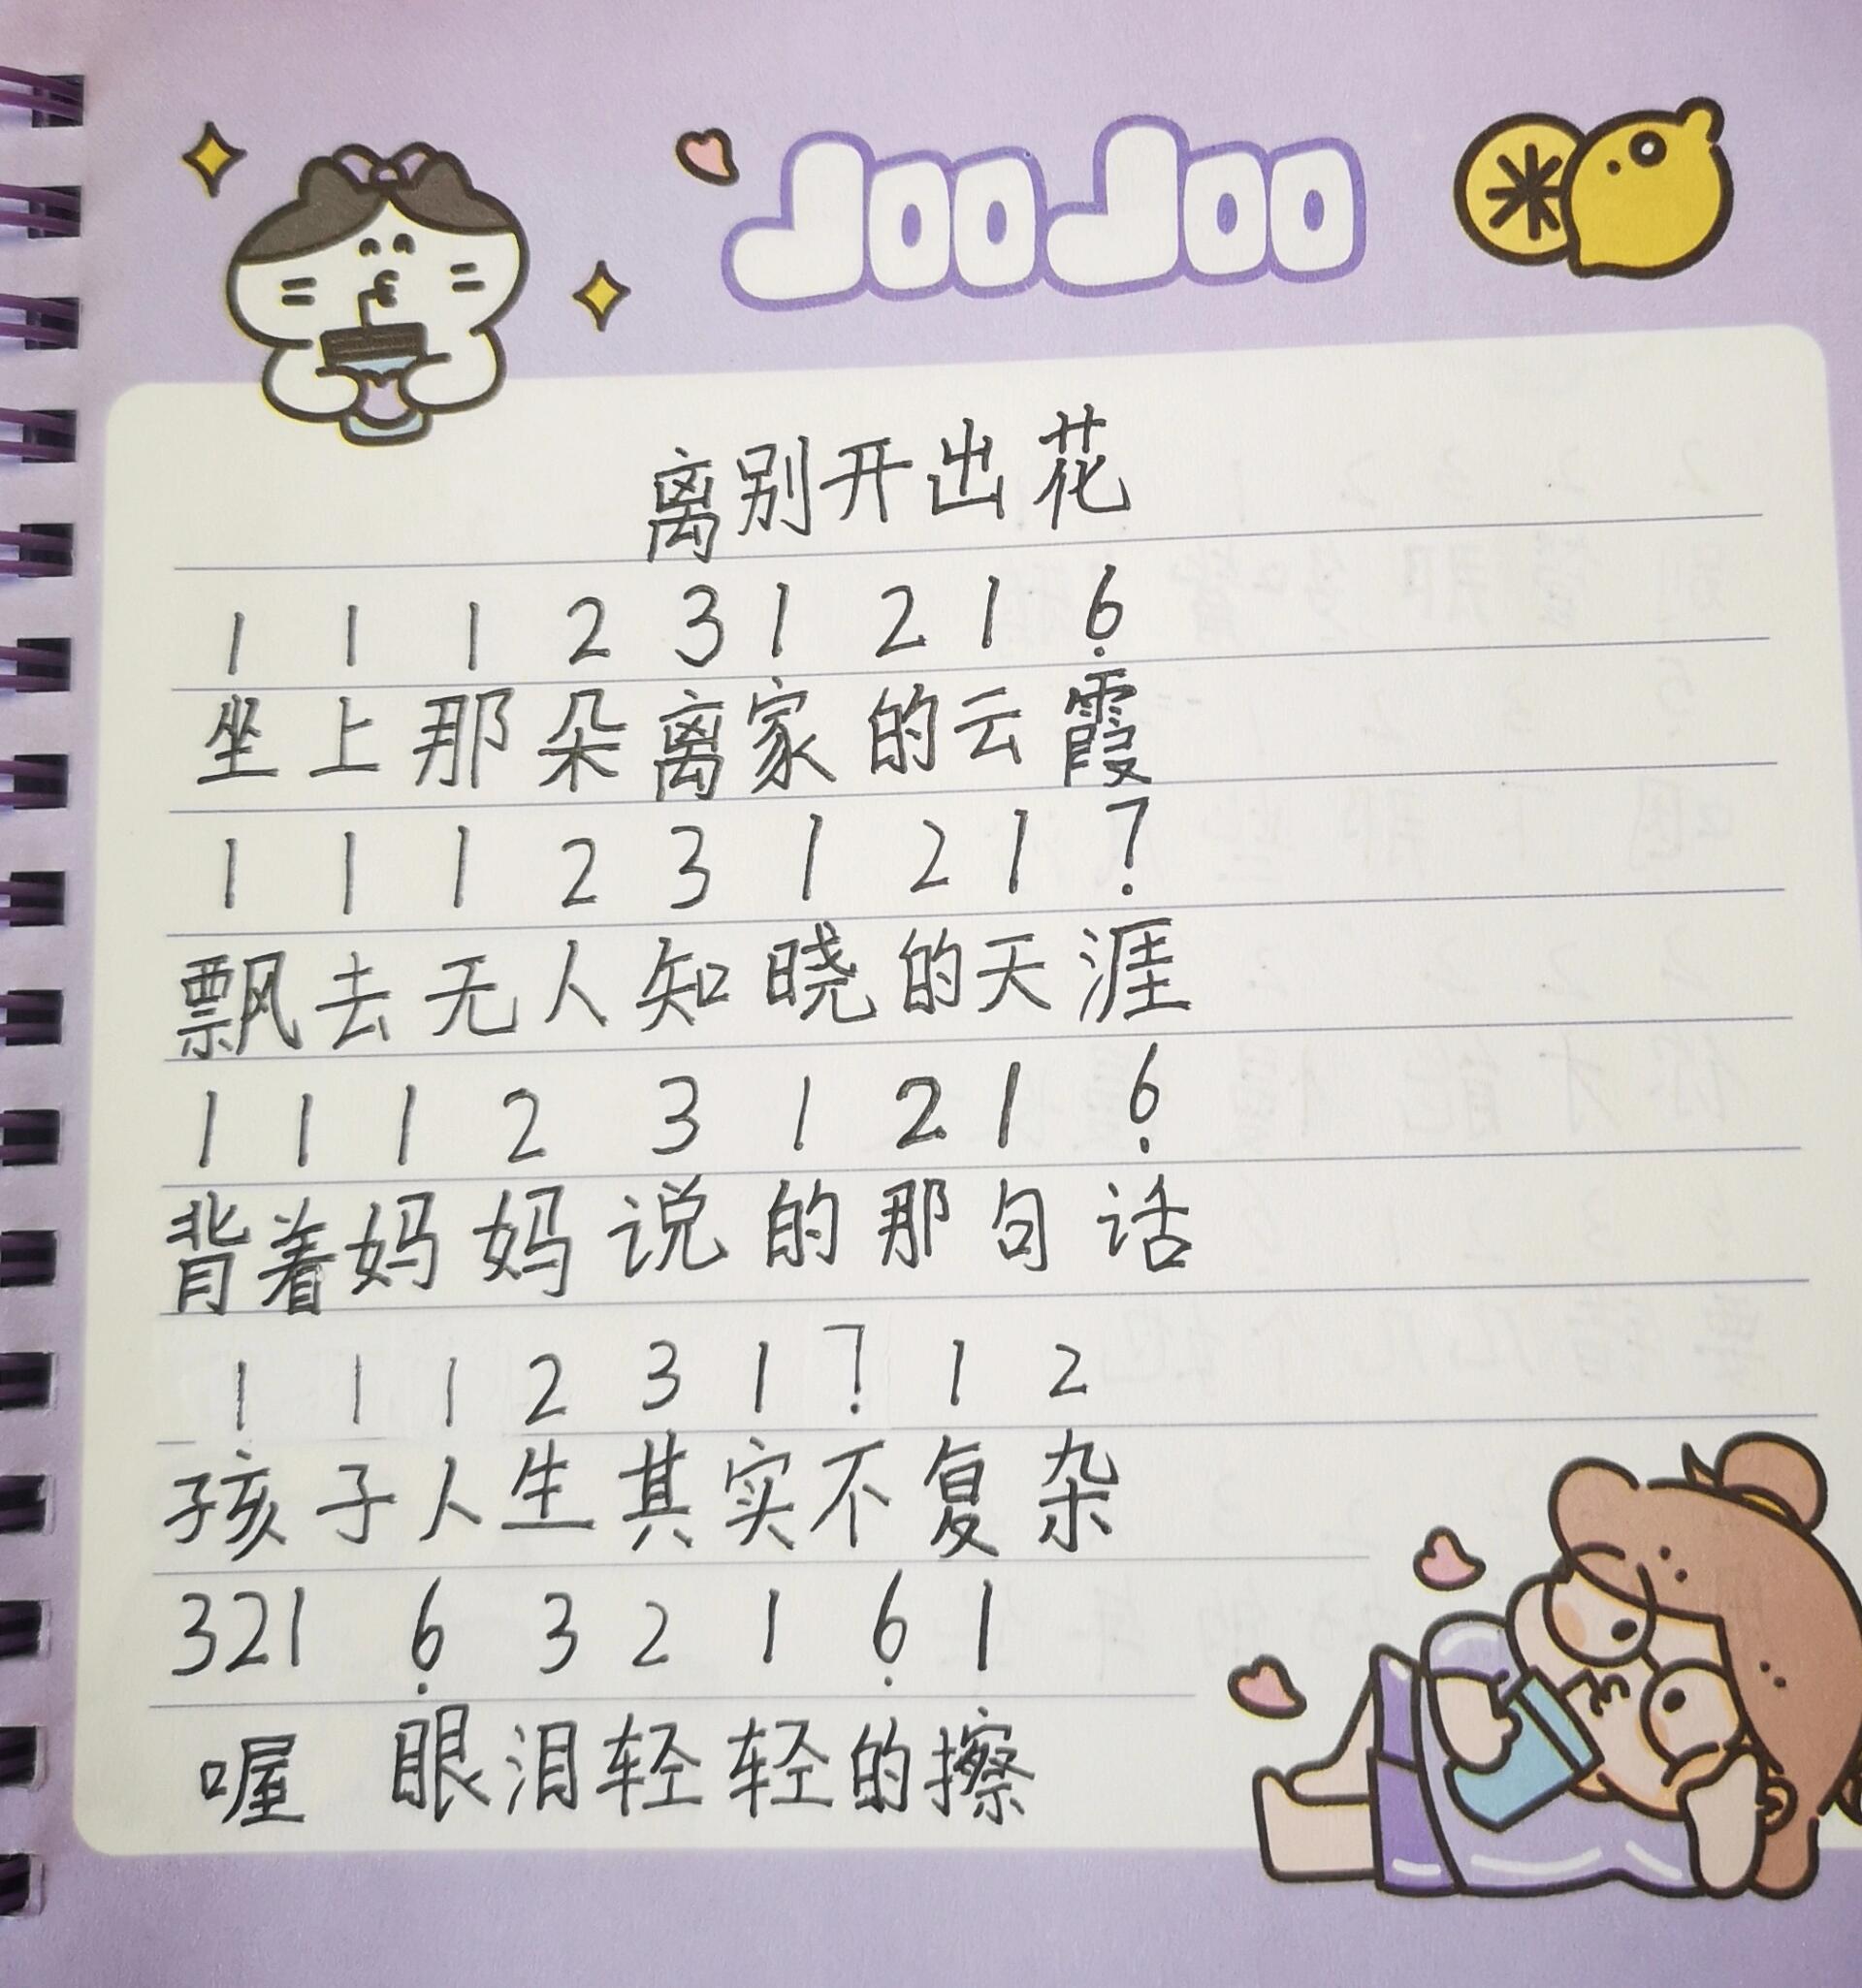 JOOJOO
离别开出花
1 1 1 2 3 1 2 1 6̣
坐上那朵离家的云霞
1 1 1 2 3 1 2 1 7̣
飘去无人知晓的天涯
1 1 1 2 3 1 2 1 6̣
背着妈妈说的那句话
1 1 1 2 3 1 7̣ 1 2
孩子人生其实不复杂
321 6̣ 3 2 1 6̣ 1
喔 眼泪轻轻的擦